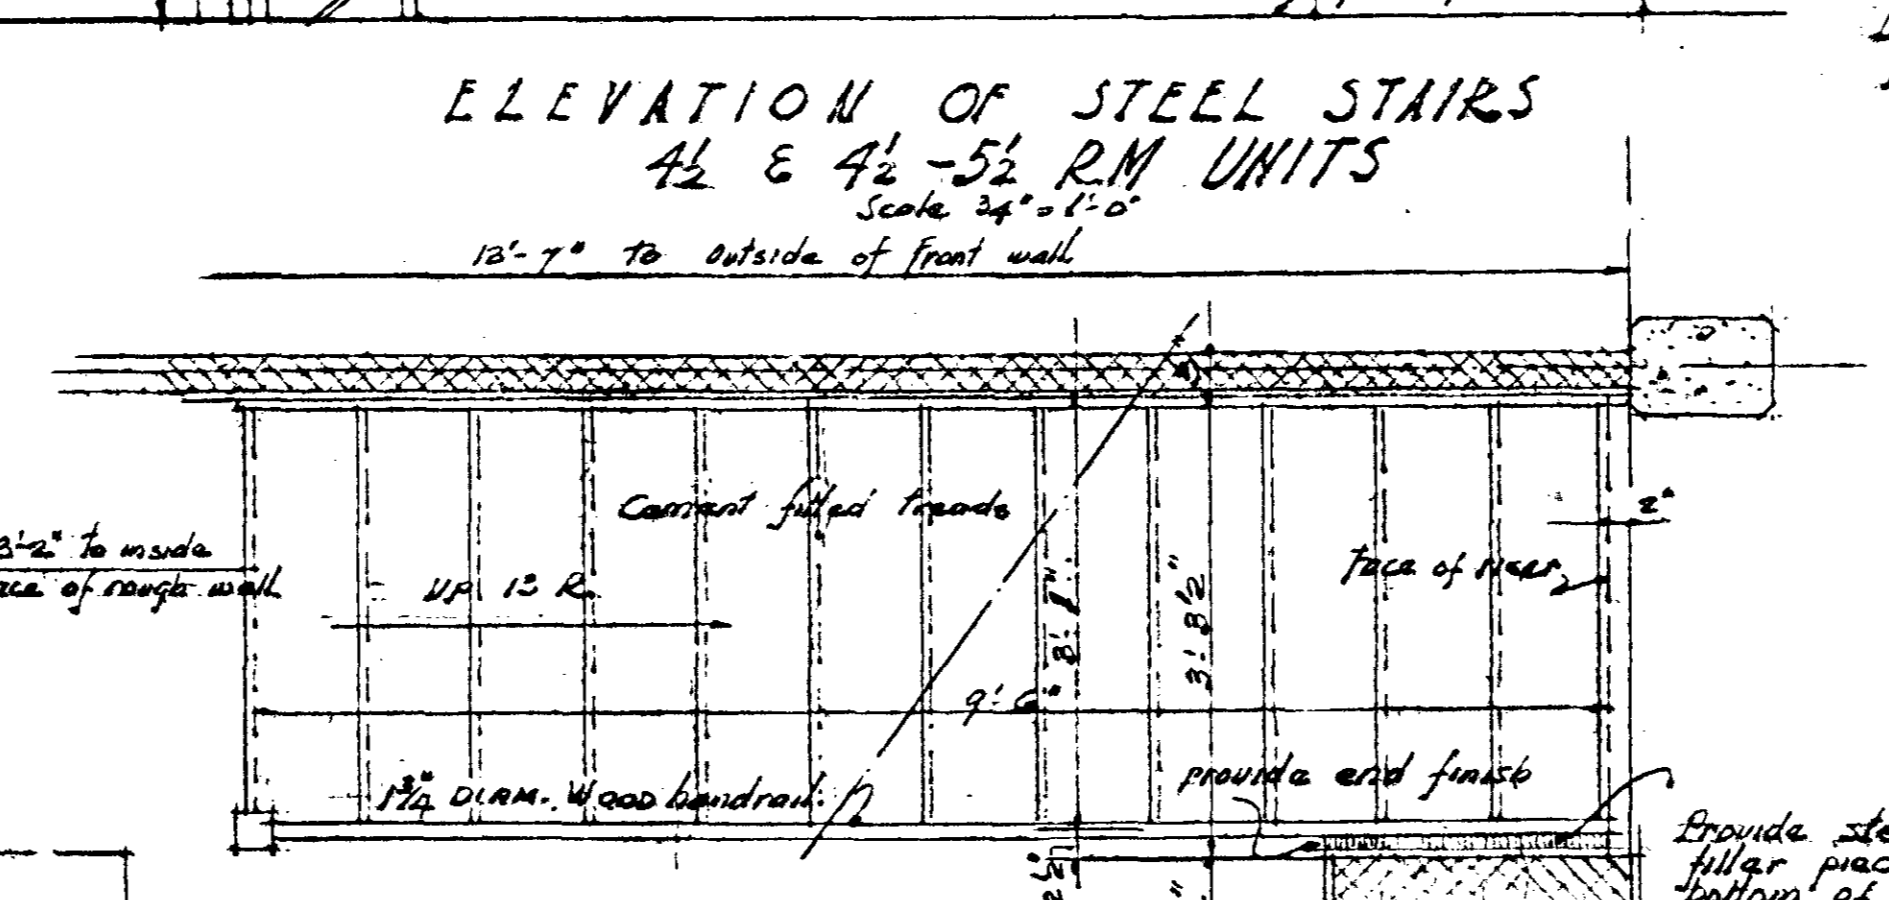 ELEVATION OF STEEL STAIRS
4½ & 4½ - 5½ RM UNITS
Scale ¾" = 1'-0"
13'-7" to outside of front wall
2"
Cement filled treads
3'-2" to inside
face of rough wall
UP 13 R.
3'-1"
3'-3½"
Face of riser
9'-6"
1¾" DIAM. Wood handrail.
provide end finish
2½"
Provide
filler
bottom of